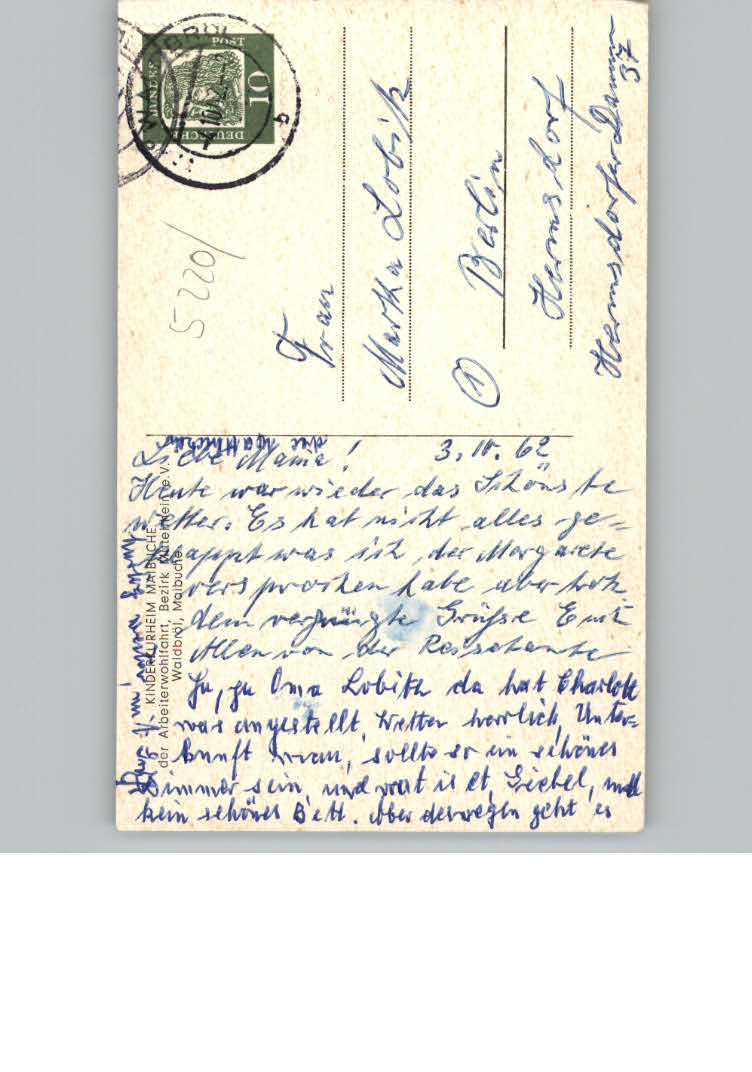 DEUTSCHE
POST
10
WALDBRÖL
b
5220/
Frau
Martha Lobitz
① Berlin
Hermsdorf
Hermsdorfer Damm
37
3. 10. 62
Liebe Mama!
Heute war wieder das Schönste
Wetter. Es hat nicht alles ge=
klappt was ich der Margarete
versprochen habe aber trotz
dem vergnügte Grüsse Euch
Allen von der Reisetante
Ja, ja Oma Lobitz da hat Charlott
was angestellt, Wetter herrlich, Unter=
kunft mau, sollte so ein schönes
Zimmer sein, und wat is et, Giebel, und
kein schönes Bett. Aber deswegen geht es
KINDERKURHEIM MAIBUCHE
der Arbeiterwohlfahrt, Bezirk Mittelrhein e.V.
Waldbröl, Maibuche